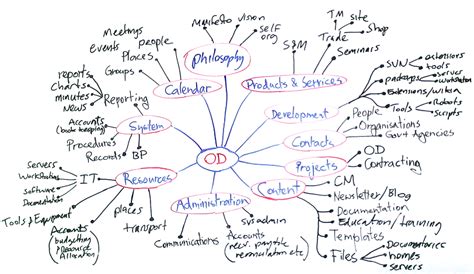 OD
Philosophy
manifesto
vision
self
org
Products & Services
S&M
Trade
TM
site
Shop
Seminars
Development
SVN
extensions
tools
packages
server
workstation
Extensions/wikia
Tools
Robots
Scripts
Contacts
People
Organisations
Gov+ Agencies
Projects
OD
Contracting
Content
CM
Newsletter/Blog
Documentation
Education/training
Templates
Files
Documentation
homes
servers
Administration
sysadmin
Accounts
Communications
Resources
IT
Servers
Workstations
software
Documentation
Tools & Equipment
Accounts
(budgetting
& resource
allocation)
places
transport
System
Reporting
reports
charts
minutes
News
Accounts
(book keeping)
Procedures
Records
BP
Calendar
Meetings
events
people
Places
Groups